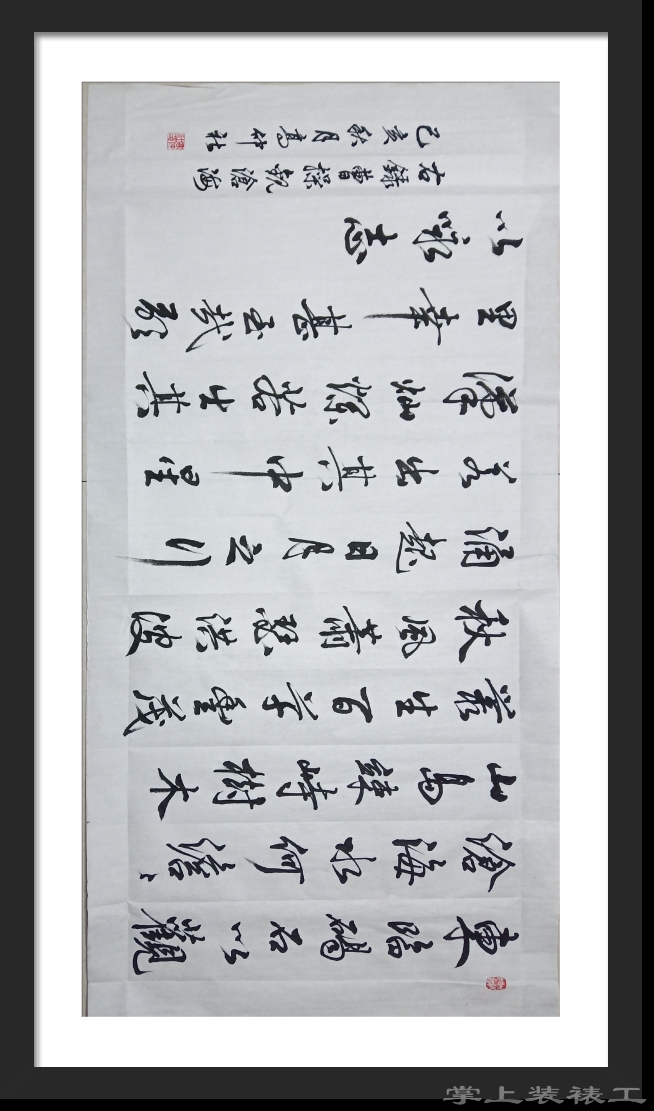 東臨碣石以觀
滄海水何澹〻
山島竦峙樹木
叢生百草豐茂
秋風蕭瑟洪波
涌起日月之行
若出其中星
漢灿爛若出其
里幸甚至哉歌
以咏志
右錄曹操觀滄海
己亥秋月高竹社
掌上装裱工